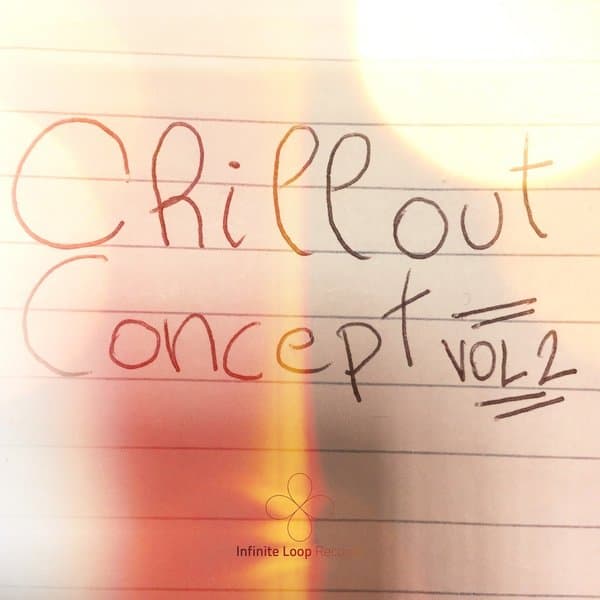 Chillout
Concept VOL 2
Infinite Loop Records